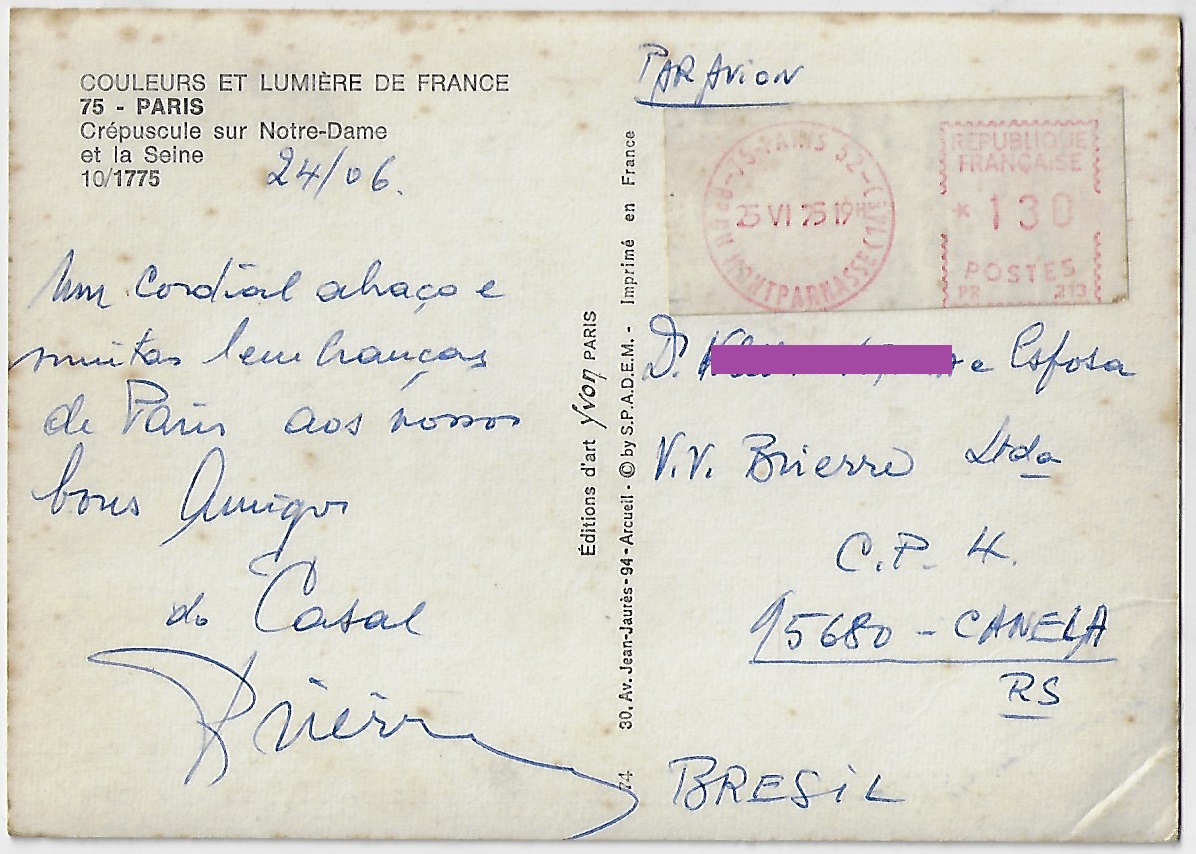 COULEURS ET LUMIÈRE DE FRANCE
75 - PARIS
Crépuscule sur Notre-Dame
et la Seine
10/1775
24/06.
Um Cordial abraço e
muitas lembranças
de Paris aos nossos
bons Amigos
do Casal
Éditions d'art Yvon PARIS
30, Av. Jean-Jaurès - 94 - Arcueil - © by S.P.A.D.E.M. - Imprimé en France
74
PAR AVION
75 PARIS 52
25 VI 75 19H
MONTPARNASSE (14E)
REPUBLIQUE
FRANÇAISE
* 130
POSTES
PR 213
Dr. e Esposa
V.V. Brierre Ltda
C.P. 4.
95680 - CANELA
RS
BRESIL